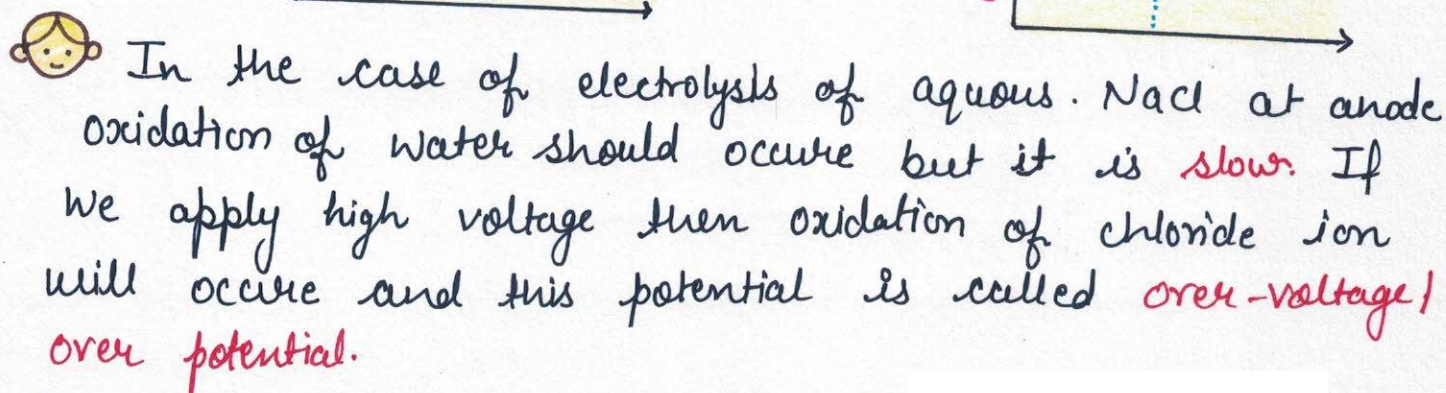 In the case of electrolysis of aquous. Nacl at anode
oxidation of water should occure but it is slow. If
we apply high voltage then oxidation of chloride ion
will occure and this potential is called over-voltage/
over potential.